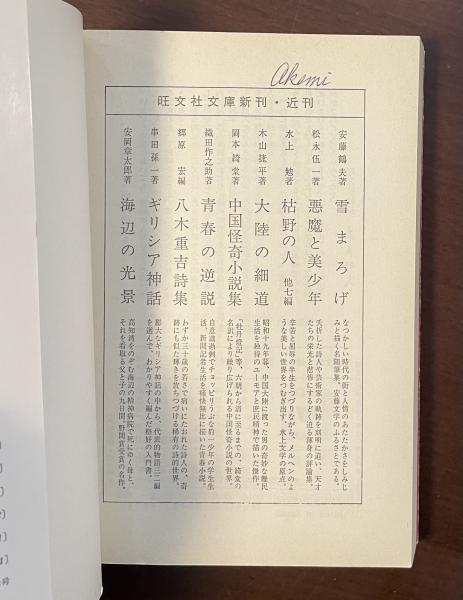 Akemi
旺文社文庫新刊・近刊
安藤鶴夫著 雪まろげ
なつかしい時代の街と人情のあたたかさをしみじ
みと描く名随筆集。安藤文学のふるさとである。
松永伍一著 悪魔と美少年
夭折した詩人や芸術家の軌跡を刻明に追い、天才
たちの栄光と悲惨にするどく迫る渾身の評論集。
水上 勉著 枯野の人 他七編
辛苦と屈辱の半生をつづりながら、メルヘンのよ
うな美しい世界をつむぎ出す、水上文学の原点。
木山捷平著 大陸の細道
昭和十九年暮、中国大陸に渡った男の奇妙な難民
生活を独特のユーモアと庶民精神で描いた傑作。
岡本綺堂著 中国怪奇小説集
「牡丹燈記」等、六朝から清に至るまでの、綺堂の
名訳により繰り広げられる中国怪奇小説の世界。
織田作之助著 青春の逆説
自意識過剰でチョッピリうぶな約一少年の学生生
活、新聞記者生活を痛快無比に描いた青春小説。
郷原 宏編 八木重吉詩集
わずか三十歳の若さで病いにたおれた詩人の、奇
跡にも似た輝きを放ちつづける稀有の詩的世界。
串田孫一著 ギリシア神話
膨大なギリシア神話の中から、代表的物語三二編
を選んで、わかりやすく編んだ格好の入門書。
安岡章太郎著 海辺の光景
高知湾をのぞむ海辺の精神病院で死にゆく母と、
それを看取る父と子の九日間。野間賞受賞の名作。